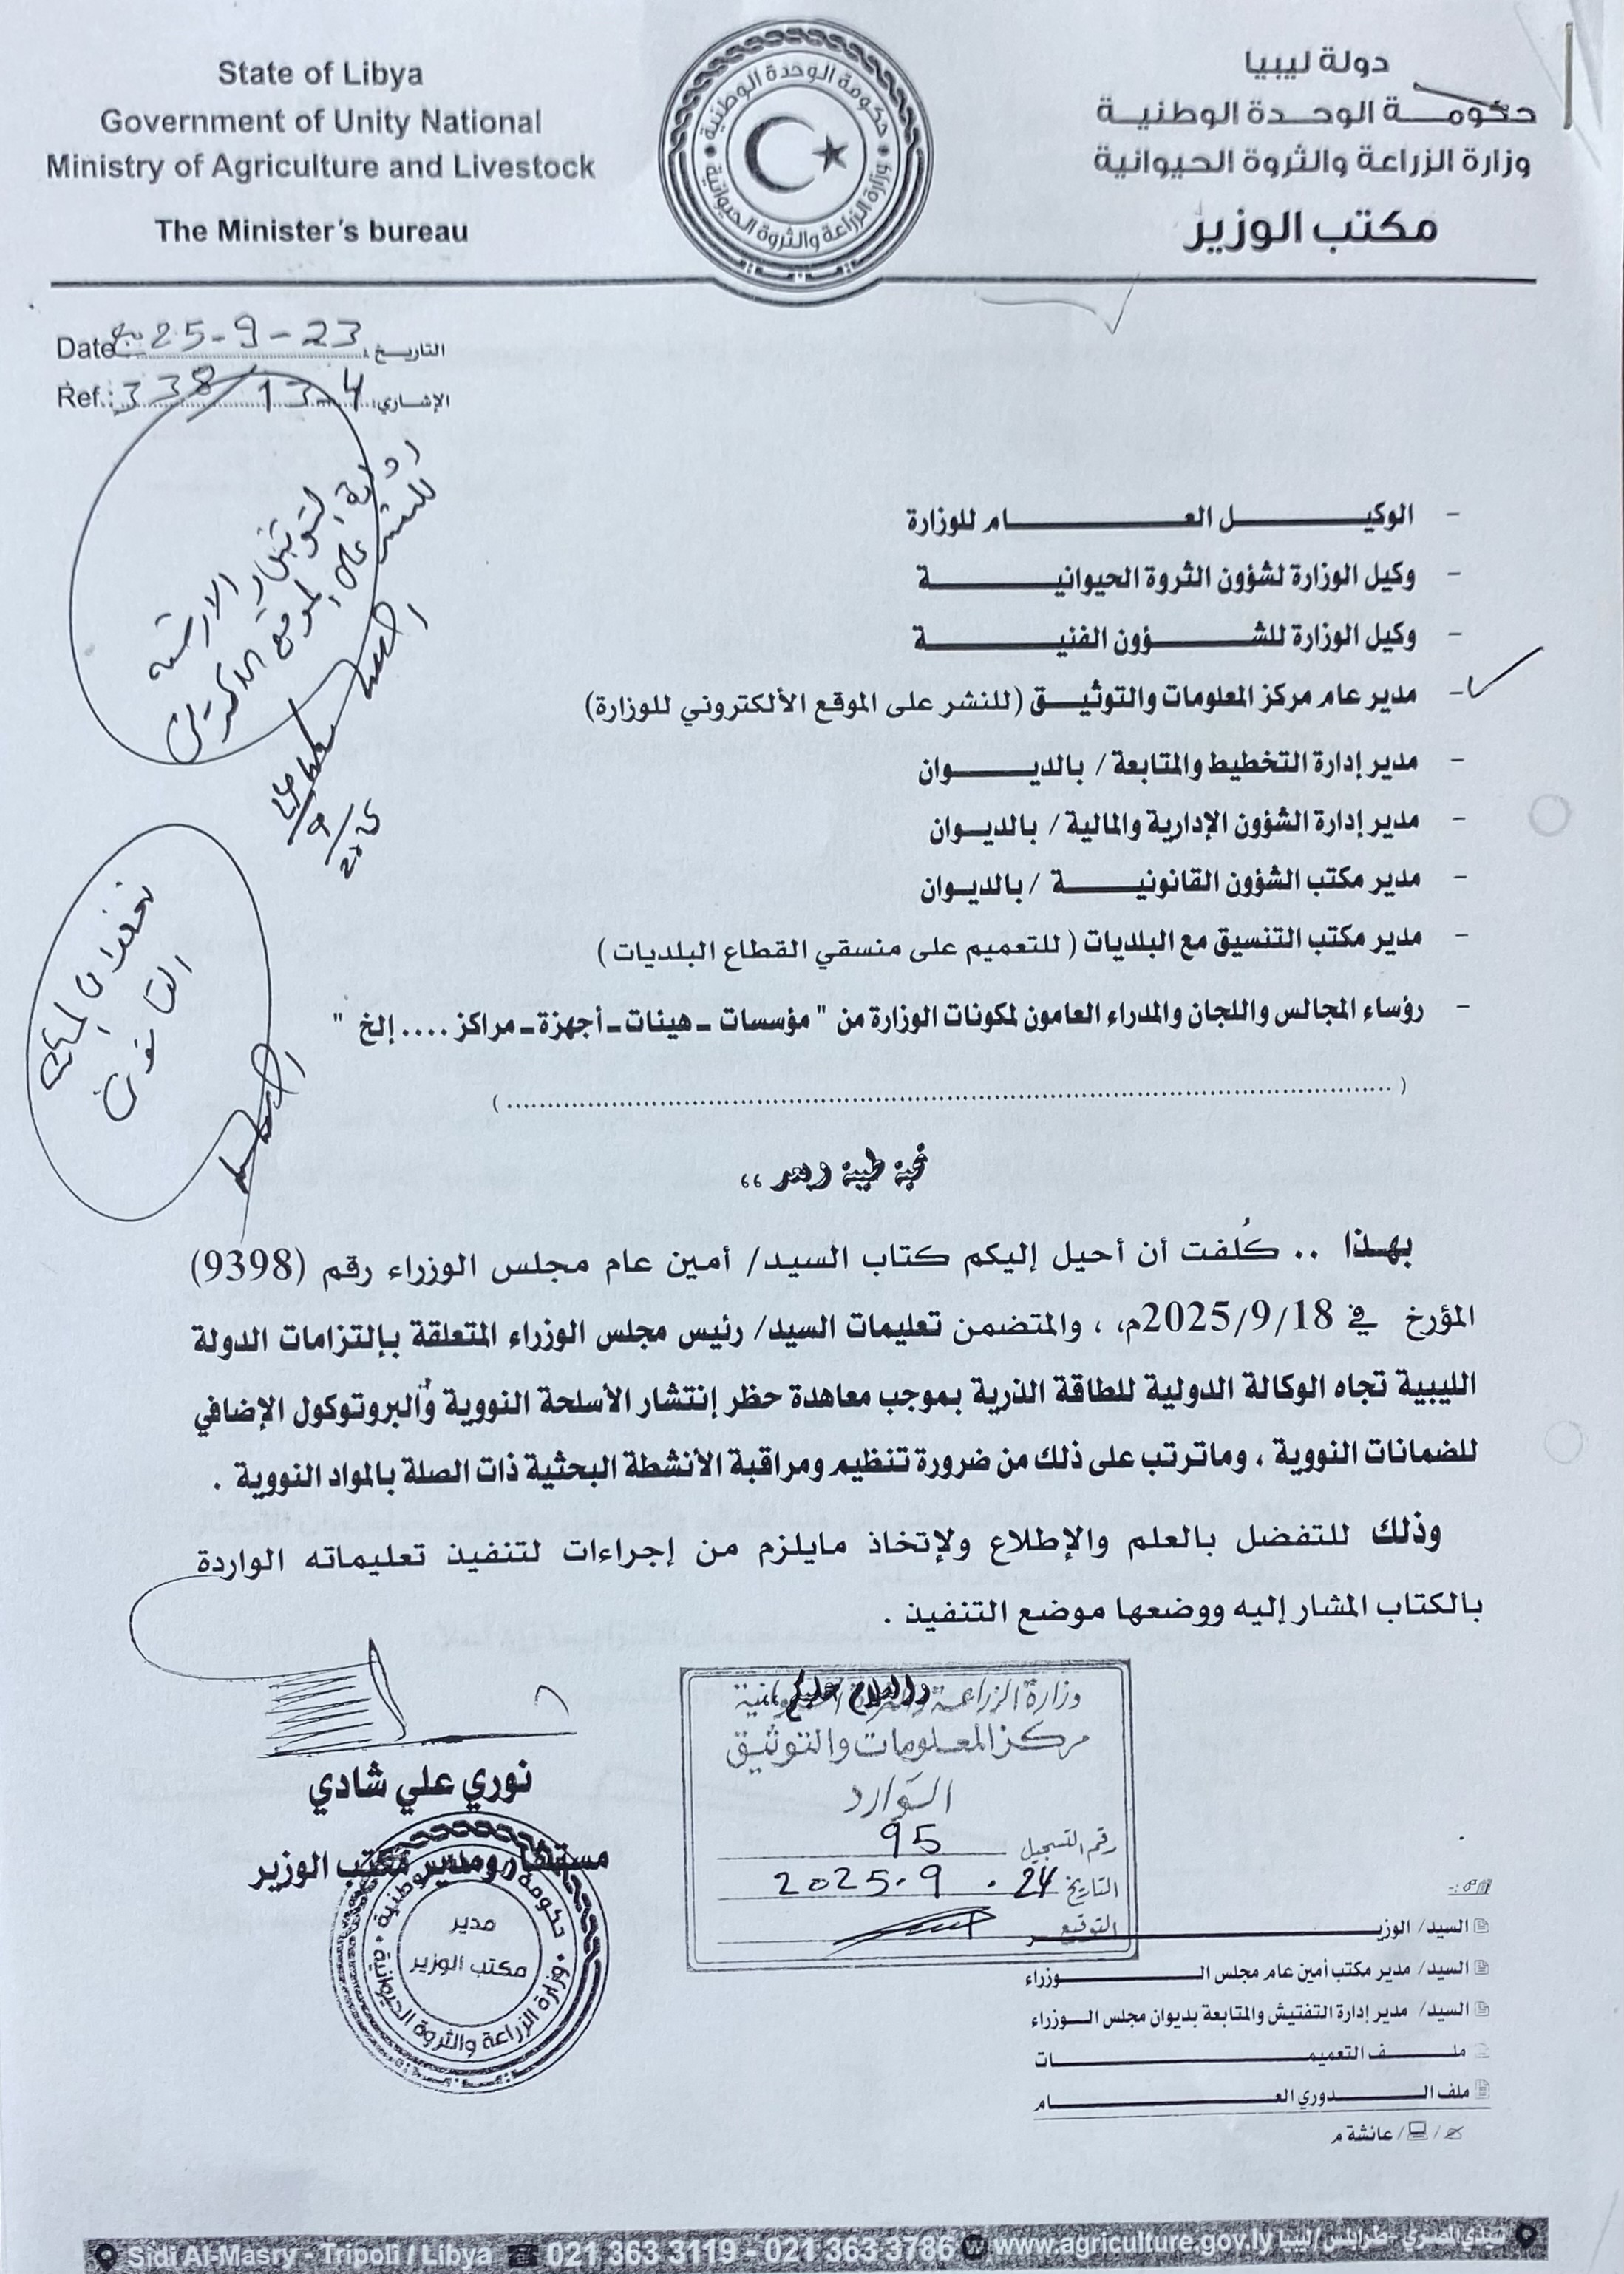 State of Libya
Government of Unity National
Ministry of Agriculture and Livestock
The Minister's bureau
دولة ليبيا
حكومة الوحدة الوطنية
وزارة الزراعة والثروة الحيوانية
مكتب الوزير
حكومة الوحدة الوطنية
وزارة الزراعة والثروة الحيوانية
Date 25-9-23 التاريخ:
Ref.: 338 13-4 الإشاري:
- الوكيل العام للوزارة
- وكيل الوزارة لشؤون الثروة الحيوانية
- وكيل الوزارة للشؤون الفنية
- مدير عام مركز المعلومات والتوثيق (للنشر على الموقع الألكتروني للوزارة)
- مدير إدارة التخطيط والمتابعة / بالديوان
- مدير إدارة الشؤون الإدارية والمالية / بالديوان
- مدير مكتب الشؤون القانونية / بالديوان
- مدير مكتب التنسيق مع البلديات ( للتعميم على منسقي القطاع البلديات )
- رؤساء المجالس واللجان والمدراء العامون لمكونات الوزارة من " مؤسسات - هيئات - أجهزة - مراكز .... إلخ "
تحية طيبة وبعد ،،
بهذا .. كُلفت أن أحيل إليكم كتاب السيد/ أمين عام مجلس الوزراء رقم (9398)
المؤرخ في 2025/9/18م، ، والمتضمن تعليمات السيد/ رئيس مجلس الوزراء المتعلقة بإلتزامات الدولة
الليبية تجاه الوكالة الدولية للطاقة الذرية بموجب معاهدة حظر إنتشار الأسلحة النووية والبروتوكول الإضافي
للضمانات النووية ، وماترتب على ذلك من ضرورة تنظيم ومراقبة الأنشطة البحثية ذات الصلة بالمواد النووية .
وذلك للتفضل بالعلم والإطلاع ولإتخاذ مايلزم من إجراءات لتنفيذ تعليماته الواردة
بالكتاب المشار إليه ووضعها موضع التنفيذ .
والسلام عليكم
وزارة الزراعة والثروة الحيوانية
مركز المعلومات والتوثيق
الوارد
رقم التسجيل 95
التاريخ 24 . 9 . 2025
التوقيع
نوري علي شادي
مستشار ومدير مكتب الوزير
حكومة الوحدة الوطنية
مدير
مكتب الوزير
وزارة الزراعة والثروة الحيوانية
السيد/ الوزير
السيد/ مدير مكتب أمين عام مجلس الوزراء
السيد/ مدير إدارة التفتيش والمتابعة بديوان مجلس الوزراء
ملف التعميمات
ملف الدوري العام
/ / عائشة م
Sidi Al-Masry - Tripoli / Libya 021 363 3119 - 021 363 3786 www.agriculture.gov.ly سيدي المصري - طرابلس / ليبيا